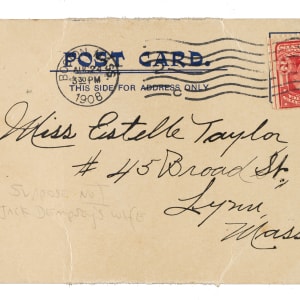 POST CARD.
THIS SIDE FOR ADDRESS ONLY
BOSTON
3 30 PM
1908
Miss Estelle Taylor
# 45 Broad St.
Lynn,
Mass
Suppose not
Jack Dempsey's wife